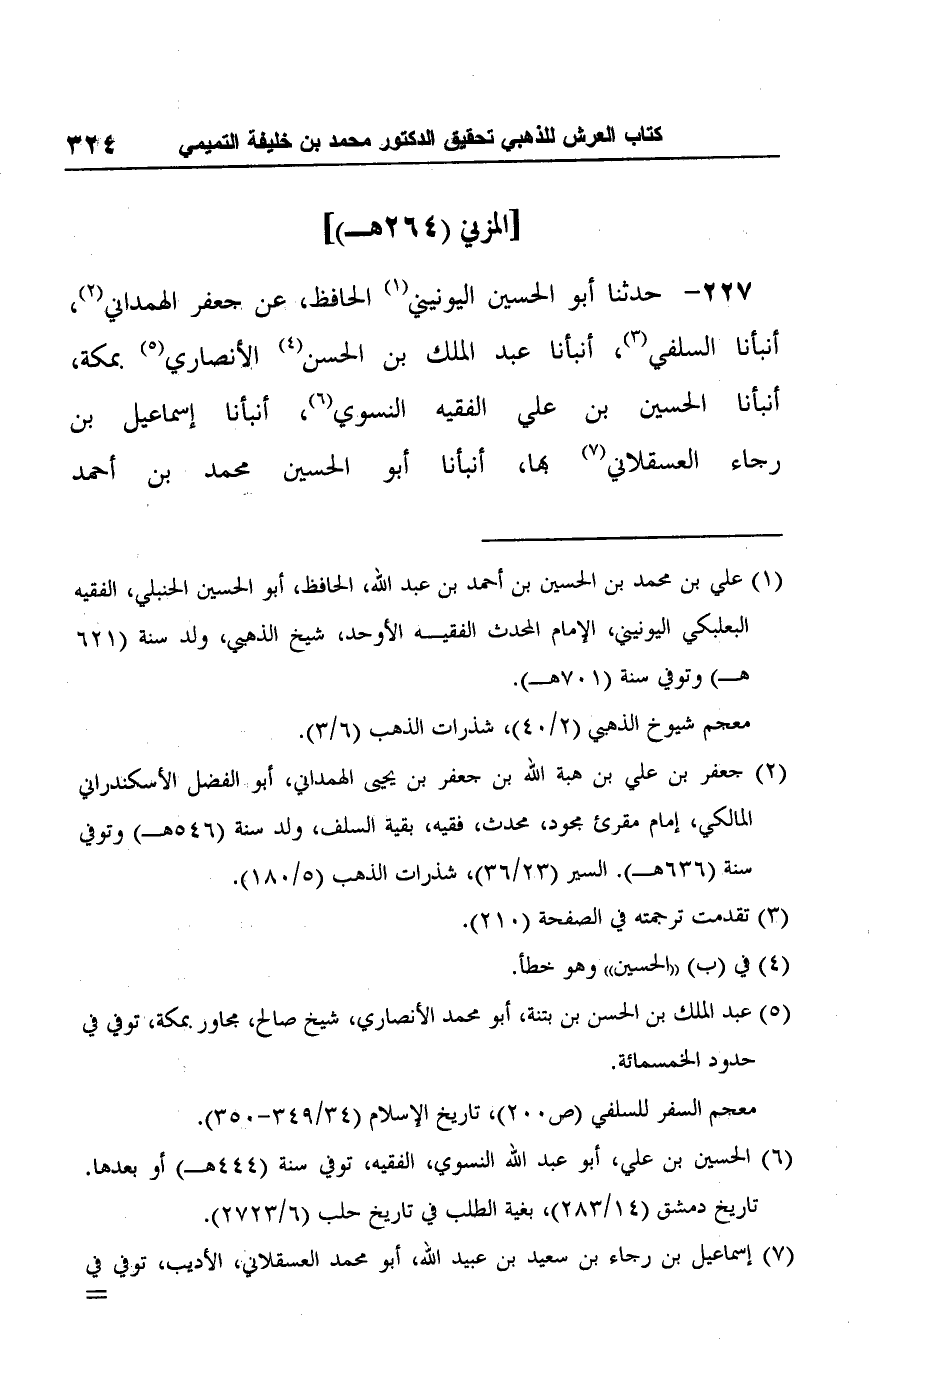 كتاب العرش للذهبي تحقيق الدكتور محمد بن خليفة التميمي ٣٢٤
[المزني (٢٦٤هـ)]
٢٢٧- حدثنا أبو الحسين اليونيني(١) الحافظ، عن جعفر الهمداني(٢)،
أنبأنا السلفي(٣)، أنبأنا عبد الملك بن الحسن(٤) الأنصاري(٥) بمكة،
أنبأنا الحسين بن علي الفقيه النسوي(٦)، أنبأنا إسماعيل بن
رجاء العسقلاني(٧) بها، أنبأنا أبو الحسين محمد بن أحمد
(١) علي بن محمد بن الحسين بن أحمد بن عبد الله، الحافظ، أبو الحسين الحنبلي، الفقيه
البعلبكي اليونيني، الإمام المحدث الفقيـه الأوحد، شيخ الذهبي، ولد سنة (٦٢١
هـ) وتوفي سنة (٧٠١هـ).
معجم شيوخ الذهبي (٤٠/٢)، شذرات الذهب (٣/٦).
(٢) جعفر بن علي بن هبة الله بن جعفر بن يحيى الهمداني، أبو الفضل الأسكندراني
المالكي، إمام مقرئ مجود، محدث، فقيه، بقية السلف، ولد سنة (٥٤٦هـ) وتوفي
سنة (٦٣٦هـ). السير (٣٦/٢٣)، شذرات الذهب (١٨٠/٥).
(٣) تقدمت ترجمته في الصفحة (٢١٠).
(٤) في (ب) «الحسين» وهو خطأ.
(٥) عبد الملك بن الحسن بن بتنة، أبو محمد الأنصاري، شيخ صالح، مجاور بمكة، توفي في
حدود الخمسمائة.
معجم السفر للسلفي (ص٢٠٠)، تاريخ الإسلام (٣٤٩/٣٤-٣٥٠).
(٦) الحسين بن علي، أبو عبد الله النسوي، الفقيه، توفي سنة (٤٤٤هـ) أو بعدها.
تاريخ دمشق (٢٨٣/١٤)، بغية الطلب في تاريخ حلب (٢٧٢٣/٦).
(٧) إسماعيل بن رجاء بن سعيد بن عبيد الله، أبو محمد العسقلاني، الأديب، توفي في
=